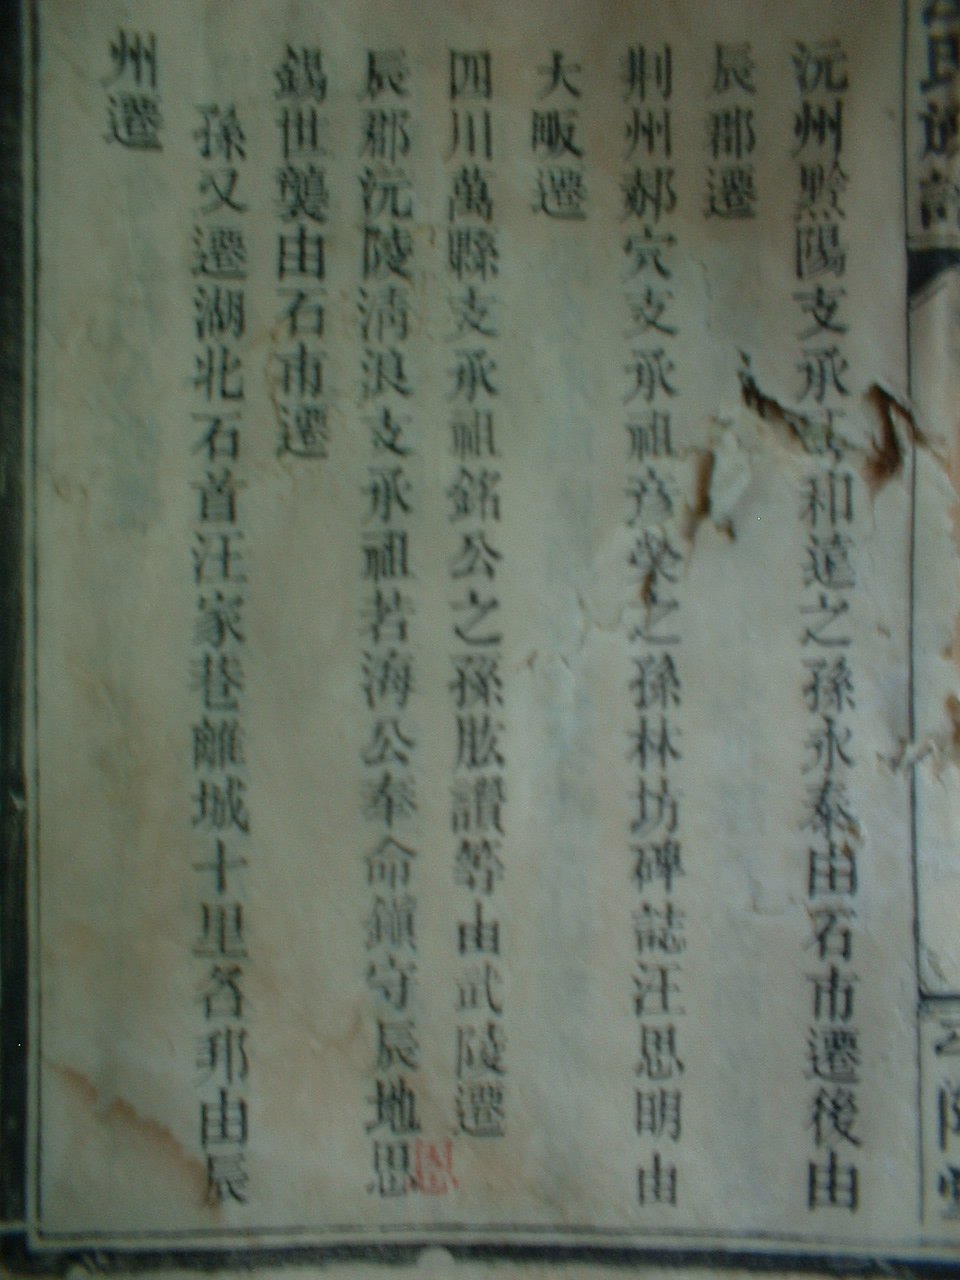 沅州黔陽支承 和遠之孫永泰由石市遷後由
辰郡遷
荆州郝穴支承祖彦榮之孫林坊碑誌汪思明由
大畈遷
四川萬縣支承祖銘公之孫肱讃等由武陵遷
辰郡沅陵清浪支承祖若海公奉命鎮守辰地思
錫世襲由石市遷
孫又遷湖北石首汪家巷離城十里各邦由辰
州遷